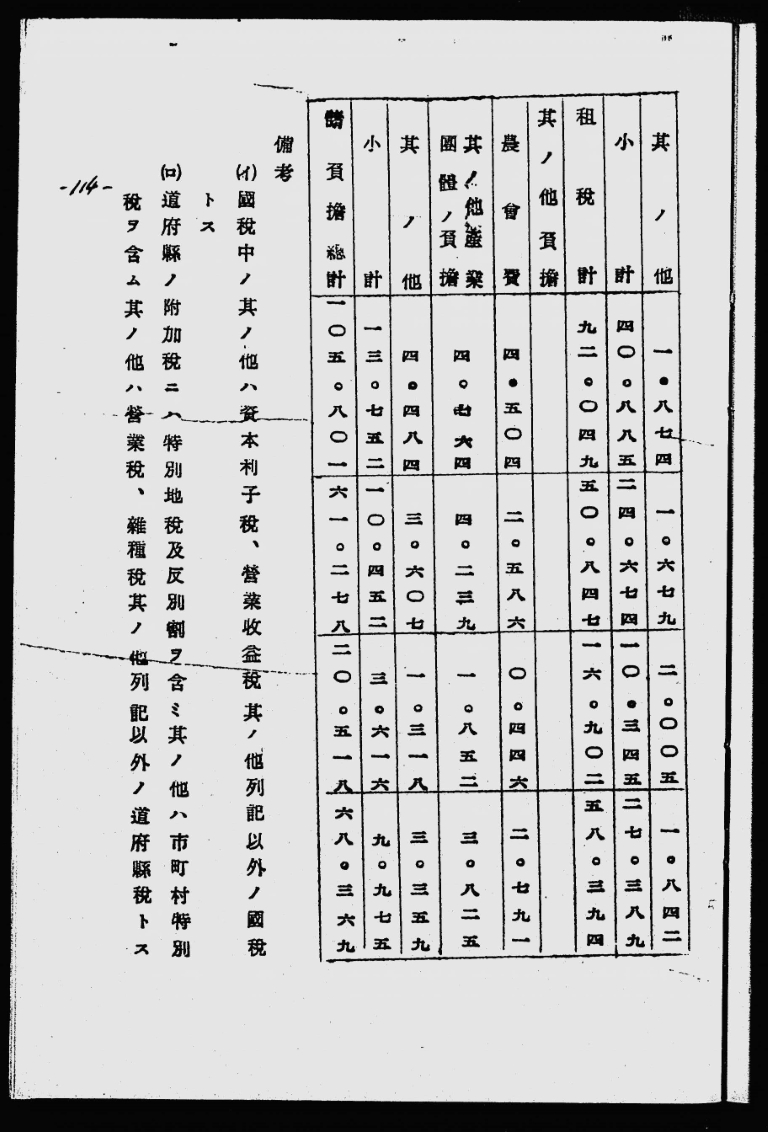 其ノ他 一・八七四 一・六七九 二・〇〇五 一・八四二
小計 四〇・八八五 二四・六七四 一〇・三四五 二七・三八九
租税計 九二・〇四九 五〇・八四七 一六・九〇二 五八・三九四
其ノ他負擔
農會費 四・五〇四 二・五八六 〇・四四六 二・七九一
其ノ他産業
團體ノ負擔 四・七六四 四・二三九 一・八五二 三・八二五
其ノ他 四・四八四 三・六〇七 一・三一八 三・三五九
小計 一三・七五二 一〇・四五二 三・六一六 九・九七五
諸負擔總計 一〇五・八〇一 六一・二七八 二〇・五一八 六八・三六九
備考
(イ)國税中ノ其ノ他ハ資本利子税、營業收益税其ノ他列記以外ノ國税
トス
(ロ)道府縣ノ附加税ニハ特別地税及反別割ヲ含ミ其ノ他ハ市町村特別
税ヲ含ム其ノ他ハ營業税、雜種税其ノ他列記以外ノ道府縣税トス
-114-